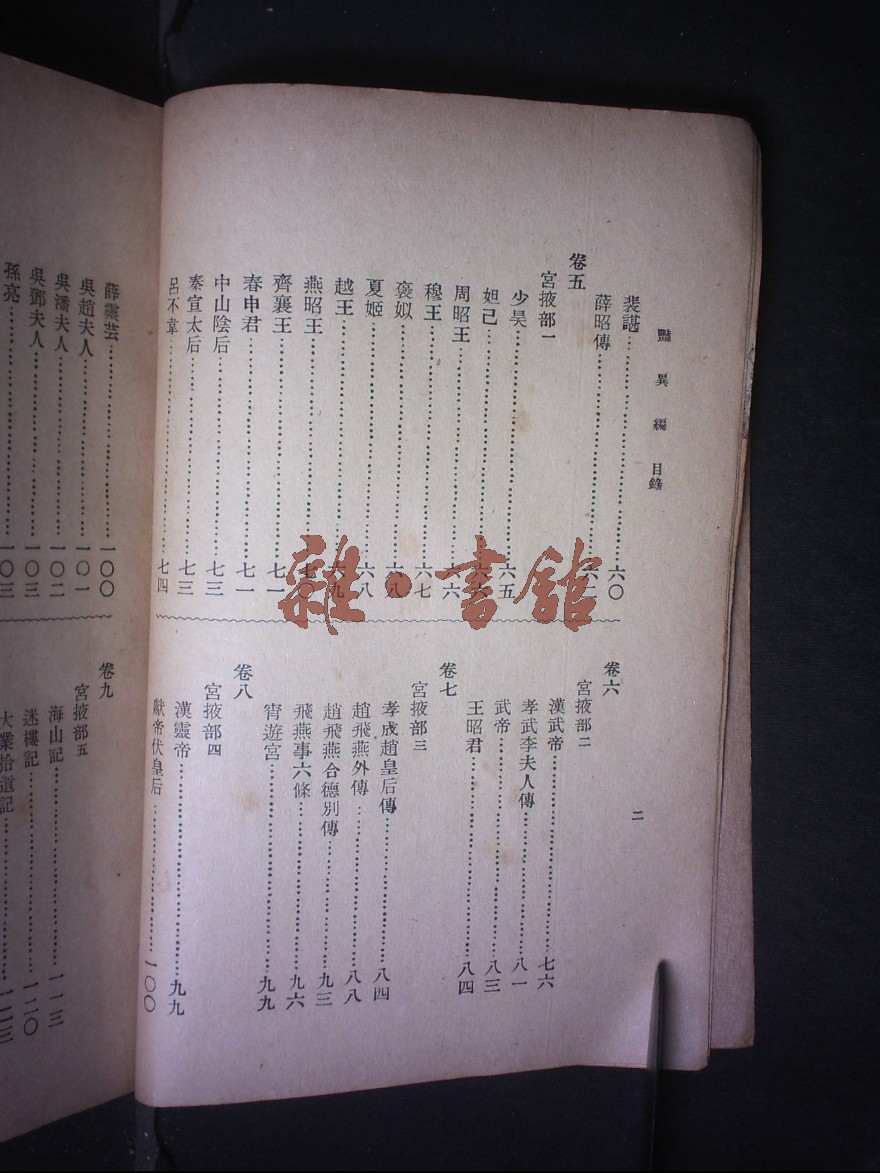 豔異編 目錄
二
裴諶……六〇
薛昭傳……六二
卷五
宮掖部一
少昊……六五
妲己……六六
周昭王……六六
穆王……六七
褒姒……六八
夏姬……六八
越王……六九
燕昭王……七〇
齊襄王……七一
春申君……七一
中山陰后……七三
秦宣太后……七三
呂不韋……七四
卷六
宮掖部二
漢武帝……七六
孝武李夫人傳……八一
武帝……八三
王昭君……八四
卷七
宮掖部三
孝成趙皇后傳……八四
趙飛燕外傳……八八
趙飛燕合德別傳……九三
飛燕事六條……九六
宵遊宮……九九
卷八
宮掖部四
漢靈帝……九九
獻帝伏皇后……一〇〇
薛靈芸……一〇〇
吳趙夫人……一〇一
吳潘夫人……一〇二
吳鄧夫人……一〇三
孫亮……一〇三
卷九
宮掖部五
海山記……一一三
迷樓記……一二〇
大業拾遺記……一二三
雜·書館